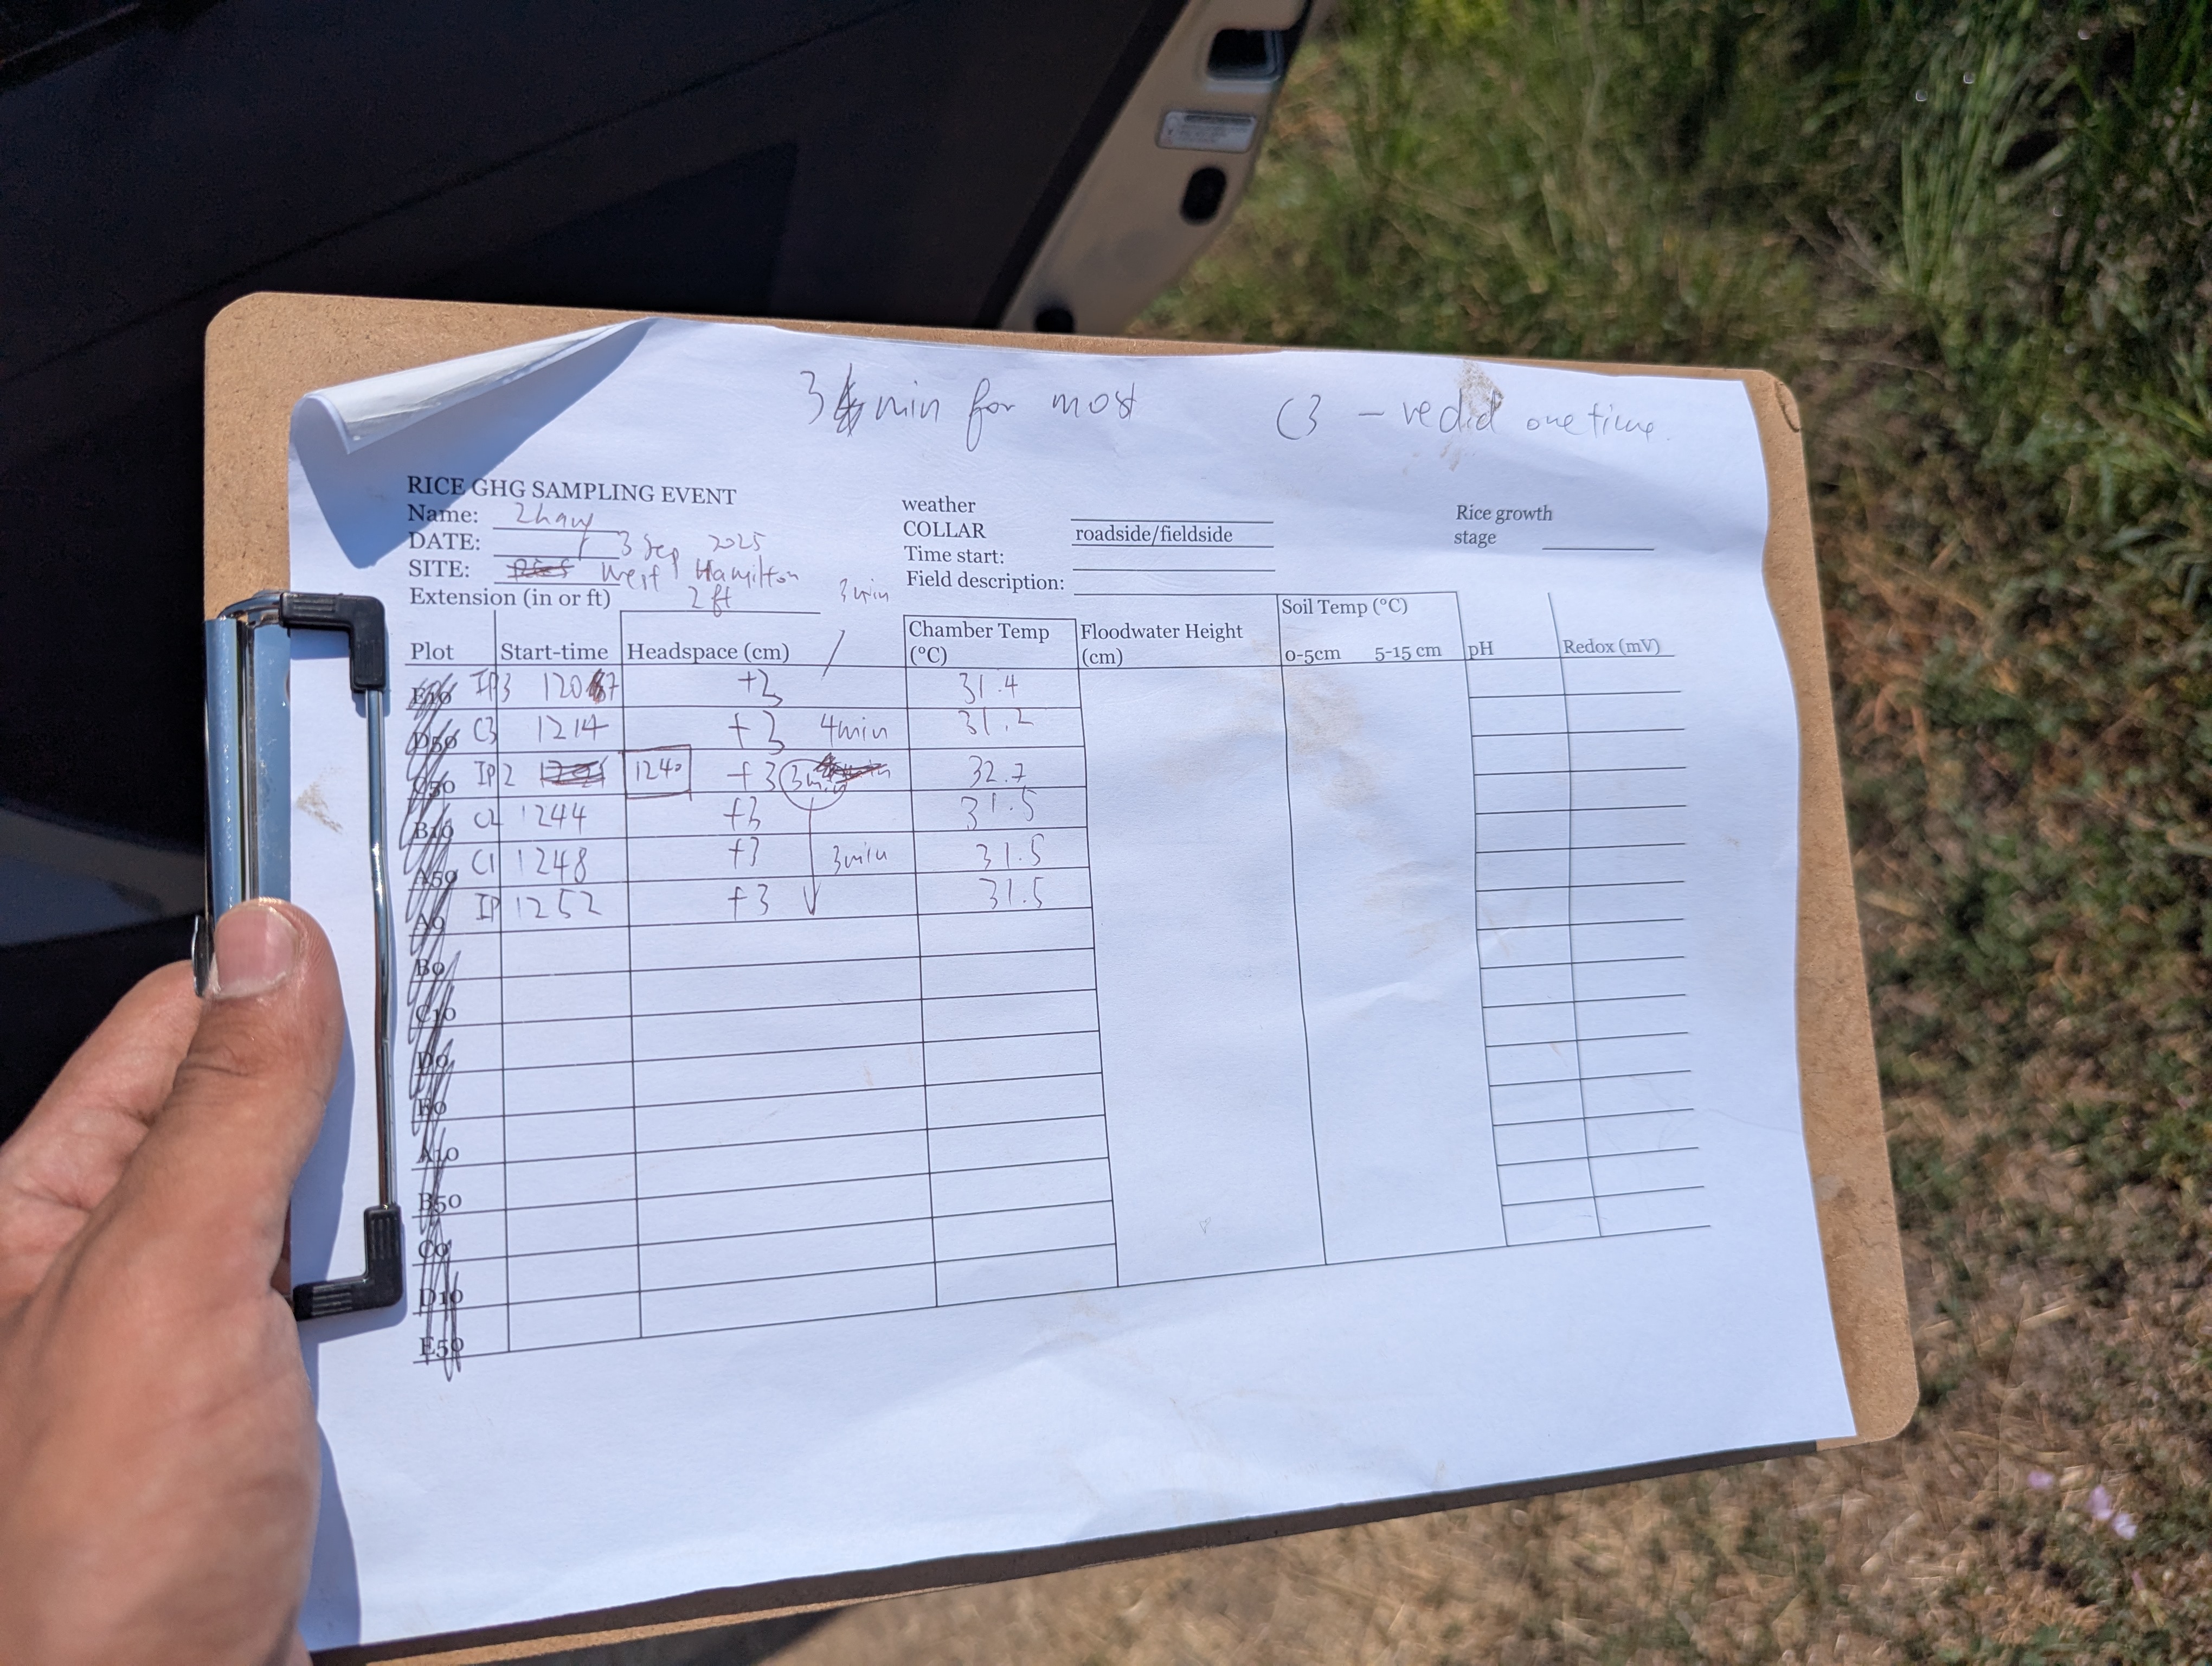 3 min for most C3 – redid one time.
RICE GHG SAMPLING EVENT
Name: Zhang
DATE: 3 Sep 2025
SITE: West Hamilton
Extension (in or ft) 2 ft 3 min
weather
COLLAR roadside/fieldside
Time start:
Field description:
Rice growth
stage
Plot Start-time Headspace (cm) / Chamber Temp (°C) Floodwater Height (cm) Soil Temp (°C) 0-5cm 5-15 cm pH Redox (mV)
E10 IP3 1207 +3 31.4
D50 C3 1214 +3 4min 31.2
C50 IP2 1240 +3 3min 32.7
B10 C2 1244 +3 31.5
A50 C1 1248 +3 3min 31.5
A0 IP 1252 +3 31.5
B0
C10
D0
E0
A10
B50
C0
D10
E50